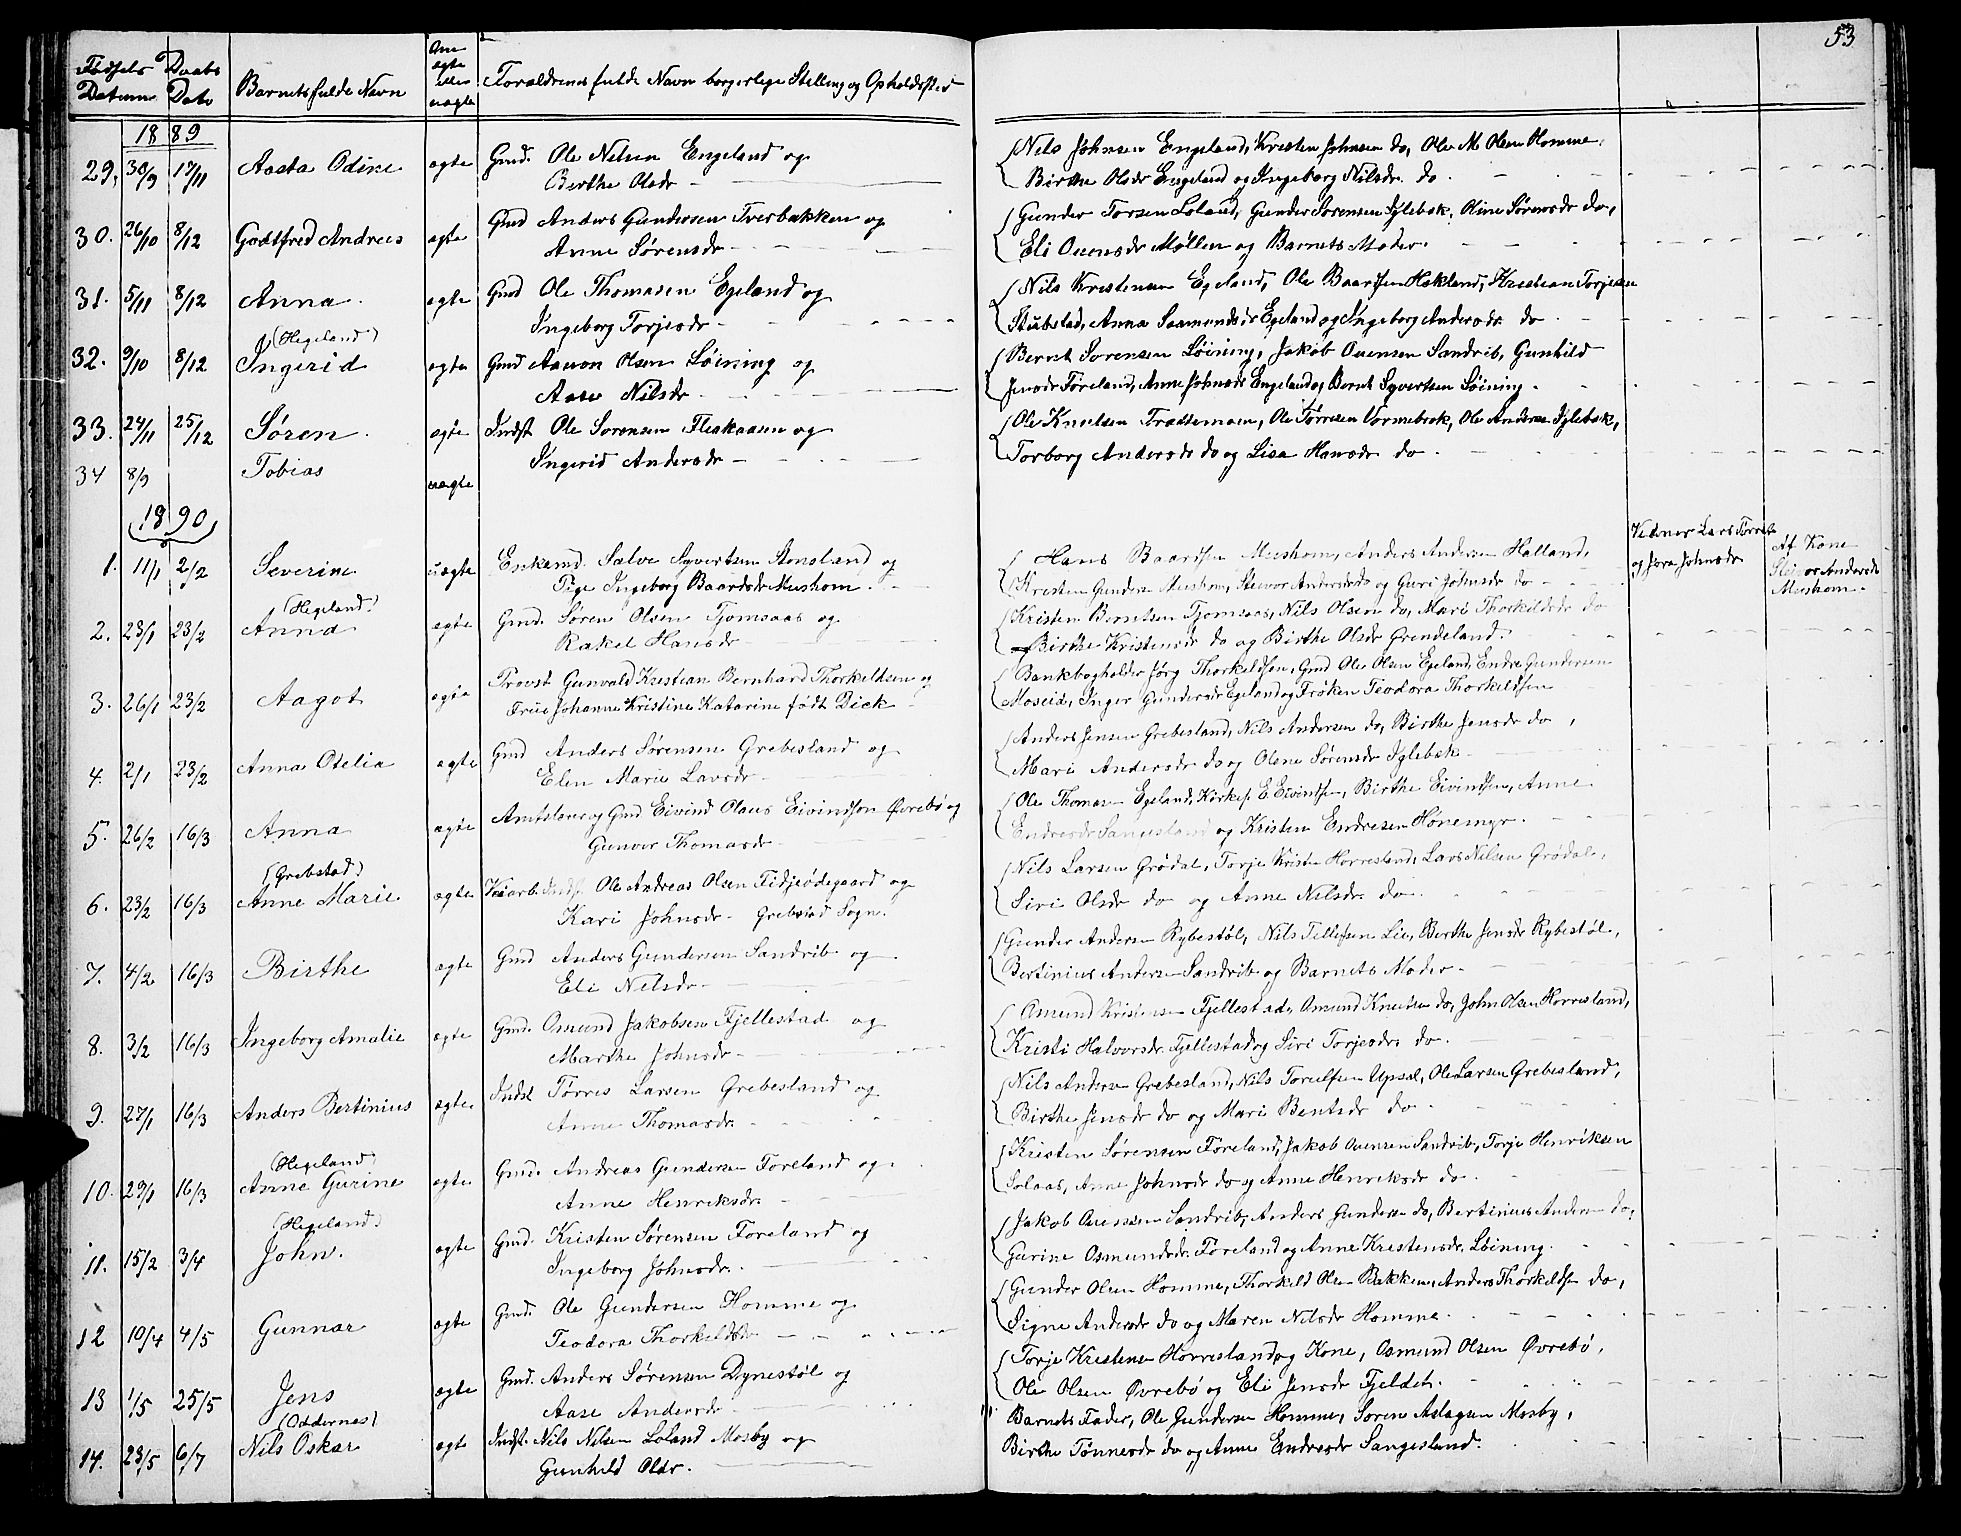 53
Fødsels Daabs Barnets fulde Navn Om ægte eller uægte Forældrenes fulde Navn borgerlige Stilling og Opholdssted
Datum Dato
1889
29. 30/9 17/11 Aasta Odine ægte Gmd. Ole Nelsen Engeland og
Berthe Olsdr
Nils Johnsen Engeland, Kristen Johnsen do, Ole M Olsen Homme,
Birthe Olsdr Engeland og Ingeborg Nilsdr. do.
30. 26/10 8/12 Godtfred Andreas ægte Gmd Anders Gundersen Tverbakken og
Anne Sørensdr
Gunder Torsen Loland, Gunder Sorensen Iglebæk, Oline Sørensdr do,
Eli Ouensdr Møllen og Barnets Moder.
31. 5/11 8/12 Anna ægte Gmd Ole Thomasen Egeland og
Ingeborg Torjesdr
Nils Kristensen Egeland, Ole Baardsen Hokland, Kristian Torjesen
Stubstad, Anna Saamundsdr Egeland og Ingeborg Andersdr do
(Hegeland)
32. 9/10 8/12 Ingerid ægte Gmd Aanon Olsen Løining og
Aase Nilsdr
Bernt Sorensen Løining, Jakob Ouensen Sandrib, Gunhild
Jensdr Føreland, Anne Johnsdr Engeland og Bernt Syvertsen Løining.
33. 24/11 25/12 Søren ægte Indst Ole Sorensen Fleakaasen og
Ingerid Andersdr
Ole Knutsen Trædtemoen, Ole Torresen Vormebrok, Ole Andersen Iglebæk,
Torborg Andersdr do og Lisa Hansdr do.
34 8/9 Tobias uægte
1890
1. 11/1 2/2 Severine uægte Enkemd. Salve Syvertsen Stensland og
Pige Ingeborg Baardsdr Mushom.
Hans Baardsen Mushom, Anders Andersen Halland,
Kristen Gunders Mushom, Steinor Andersdr do og Guri Johnsdr do
Vidner Lars Tørres
og Jora Johnsdr
Af Kone
Steinor Andersdr
Mushom.
(Hegeland)
2. 23/1 23/2 Anna ægte Gmd. Søren Olsen Tjomsaas og
Rakel Hansdr
Kristen Berntsen Tjomsaas, Nils Olsen do, Mari Thorkildsdr do
Birthe Kristensdr do og Birthe Olsdr Grendeland.
3. 26/1 23/2 Aagot ægte Provst Gunvald Kristian Bernhard Thorkeldsen og
Frue Johanne Kristine Katarine født Dick
Bankbogholder Jørg Thorkeldsen, Gmd Ole Olsen Egeland, Endre Gundersen
Moseid, Inger Gundersdr Egeland og Frøken Teodora Thorkeldsen
4. 2/1 23/2 Anna Otelia ægte Gmd Anders Sørensen Grebesland og
Elen Marie Larsdr
Anders Jensen Grebesland, Nils Andersen do, Birthe Jensdr do,
Mari Andersdr do og Olene Sørensdr Iglebæk
5. 26/2 16/3 Anna ægte Amtslærer og Gmd Eivind Olaus Eivindson Øvrebø og
Gunvor Thomasdr
Ole Thomasen Egeland, Kirkes. E. Eivindsen, Birthe Eivindsen, Anne
Endresdr Sangesland og Kristen Endresen Hønemyr.
(Grebstad)
6. 23/2 16/3 Anne Marie ægte Veiarb. Indst. Ole Andreas Olsen Fidjeødegaard og
Kari Johnsdr Grebstad Sogn.
Nils Larsen Grødal, Torje Kristen Horresland, Lars Nilsen Grødal,
Siri Olsdr do og Anne Nilsdr. do.
7. 4/2 16/3 Birthe ægte Gmd Anders Gundersen Sandrib og
Eli Nilsdr
Gunder Andersen Rybestøl, Nils Tellefsen Lie, Berthe Jensdr Rybestøl,
Bertinius Anderse Sandrib og Barnets Moder.
8. 3/2 16/3 Ingeborg Amalie ægte Gmd. Osmund Jakobsen Fjellestad og
Marthe Johnsdr
Osmund Kristensen Fjellestad, Osmund Knutsen do, John Olsen Horresland,
Kristi Halvorsdr. Fjellestad og Siri Torjesdr. do.
9. 27/1 16/3 Anders Bertinius ægte Indst Tørres Larsen Grebesland og
Anne Thomasdr.
Nils Anderse Grebesland, Nils Torulfsen Upsal, Ole Larsen Grebesland,
Birthe Jensdr do og Mari Bentsdr do
(Hegeland)
10. 29/1 16/3 Anne Gurine ægte Gmd. Andreas Gundersen Foreland og
Anne Henriksdr.
Kristen Sørensen Foreland, Jakob Ouensen Sandrib, Torje Henriksen
Solaas, Anne Johnsdr do og Anne Henriksdr do.
(Hegeland)
11. 15/2 3/4 John. ægte Gmd. Kristen Sørensen Foreland og
Ingeborg Johnsdr.
Jakob Ouensen Sandrib, Anders Gundersen do, Bertinius Andersen do,
Gurine Osmundsdr. Foreland og Anne Kristensdr. Løining.
12 10/4 4/5 Gunnar ægte Gmd. Ole Gundersen Homme og
Teodora Thorkeldsdr
Gunder Olsen Homme, Thorkeld Olsen Bakken, Anders Thorkeldsen do,
Signe Andersdr do og Maren Nilsdr Homme.
13 1/5 25/5 Jens ægte Gmd. Anders Sørensen Dynestøl og
Aase Andersdr
Torje Kristensen Horresland og Kone, Osmund Olsen Øvrebø,
Ole Olsen Øvrebø og Eli Jensdr Fjeldet.
(Oddernes)
14. 23/5 6/7 Nils Oskar ægte Indst. Nils Nilsen Loland Mosby og
Gunhild Olsdr.
Barnets Fader, Ole Gundersen Homme, Soren Aslagsen Mosby,
Birthe Tønnesdr do og Anne Endresdr Sangesland.